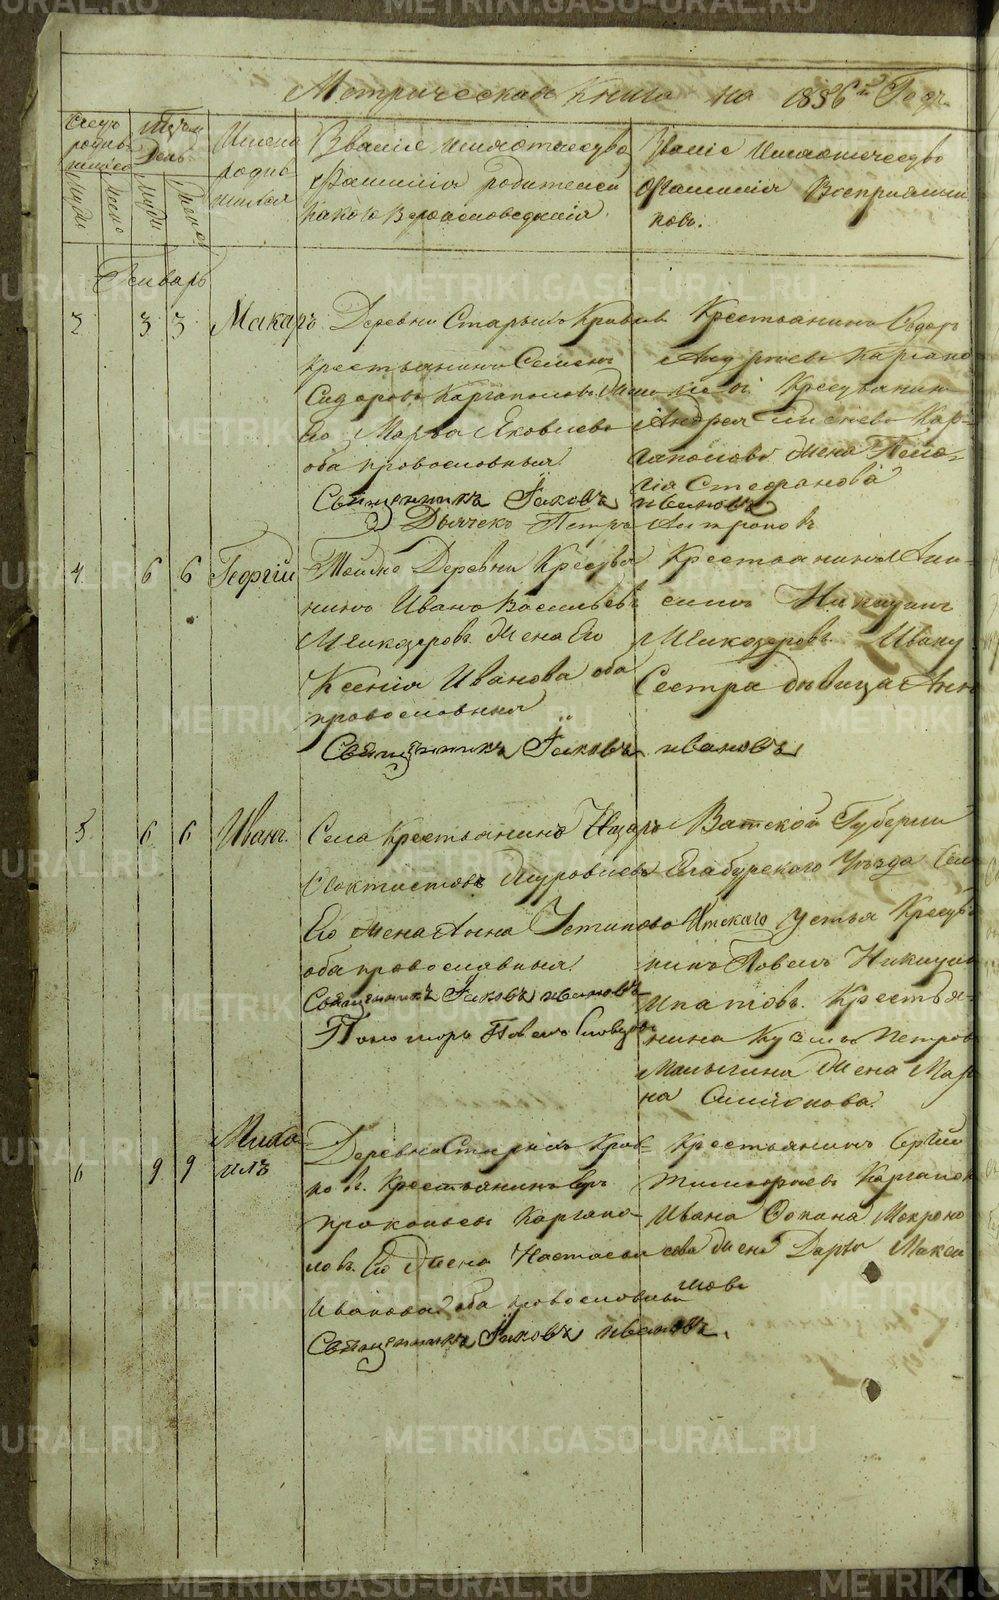 METRIKI.GASO-URAL.RU
Метрическая Книга на 1836й Годъ
Счетъ родившихся
Мужи
Женс
Мѣсяц День
Мужи
Женс
Имена родив шихся
Званіе имя отчество
Фамилія родителей
какого вероисповеданія.
Званіе Имя отчество
Фамилія Воспріемни
ковъ.
Генварь
3 3 3 Макаръ
Деревни Старыхъ
крестьянинъ Семенъ
Сидоровъ Каргаполовъ Жена
Его Марѳа Яковлева
оба православныя
Священникъ Іаковъ Ивановъ
Дьячекъ Петръ Антроповъ
Крестьянинъ Ѳедоръ
Каргапо
Крестьянин
Андрея Кар-
гаполова Жена Пела-
гія Стефанова
4 6 6 Георгій
Тойже Деревни Кресть
нинъ Иванъ Васильевъ
Мелкозеровъ Жена Его
Ксенія Иванова оба
православныя
Священникъ Іаковъ Ивановъ
Крестьянина
сынъ
Мелкозеровъ Ивану
Сестра дѣвица Анн
5 6 6 Иванъ.
Села Крестьянинъ Назаръ
Ѳеоктистовъ Журавлевъ
Его Жена Анна Устинова
оба православныя.
Священникъ Іаковъ Ивановъ
Пономорь Павелъ
Вятской Губерніи
Елабужского Уѣзда Села
Устья Кресть
нинъ Павелъ
Ипатовъ. Крестья-
нина Кузмы Петров
Малыгина Жена Мар
на
6 9 9 Миха-
илъ
Деревни Старыхъ Крив-
ко въ. Крестьянинъ
Прокопьевъ Каргапо-
ловъ Его Жена Настасья
Иванова оба православны
Священникъ Іаковъ Ивановъ.
Крестьянинъ Сергій
Тимофѣевъ Каргапол
Ивана Мокроно
сова Жена Дарья Макси
мова